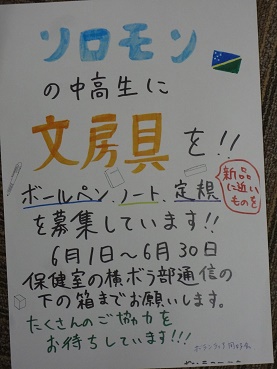 ソロモン
の中高生に
文房具を!!
新品
に近い
ものを
ボールペン、ノート、定規
を募集しています!!
6月1日～6月30日
保健室の横ボラ部通信の
下の箱までお願いします。
たくさんのご協力を
お待ちしています!!!